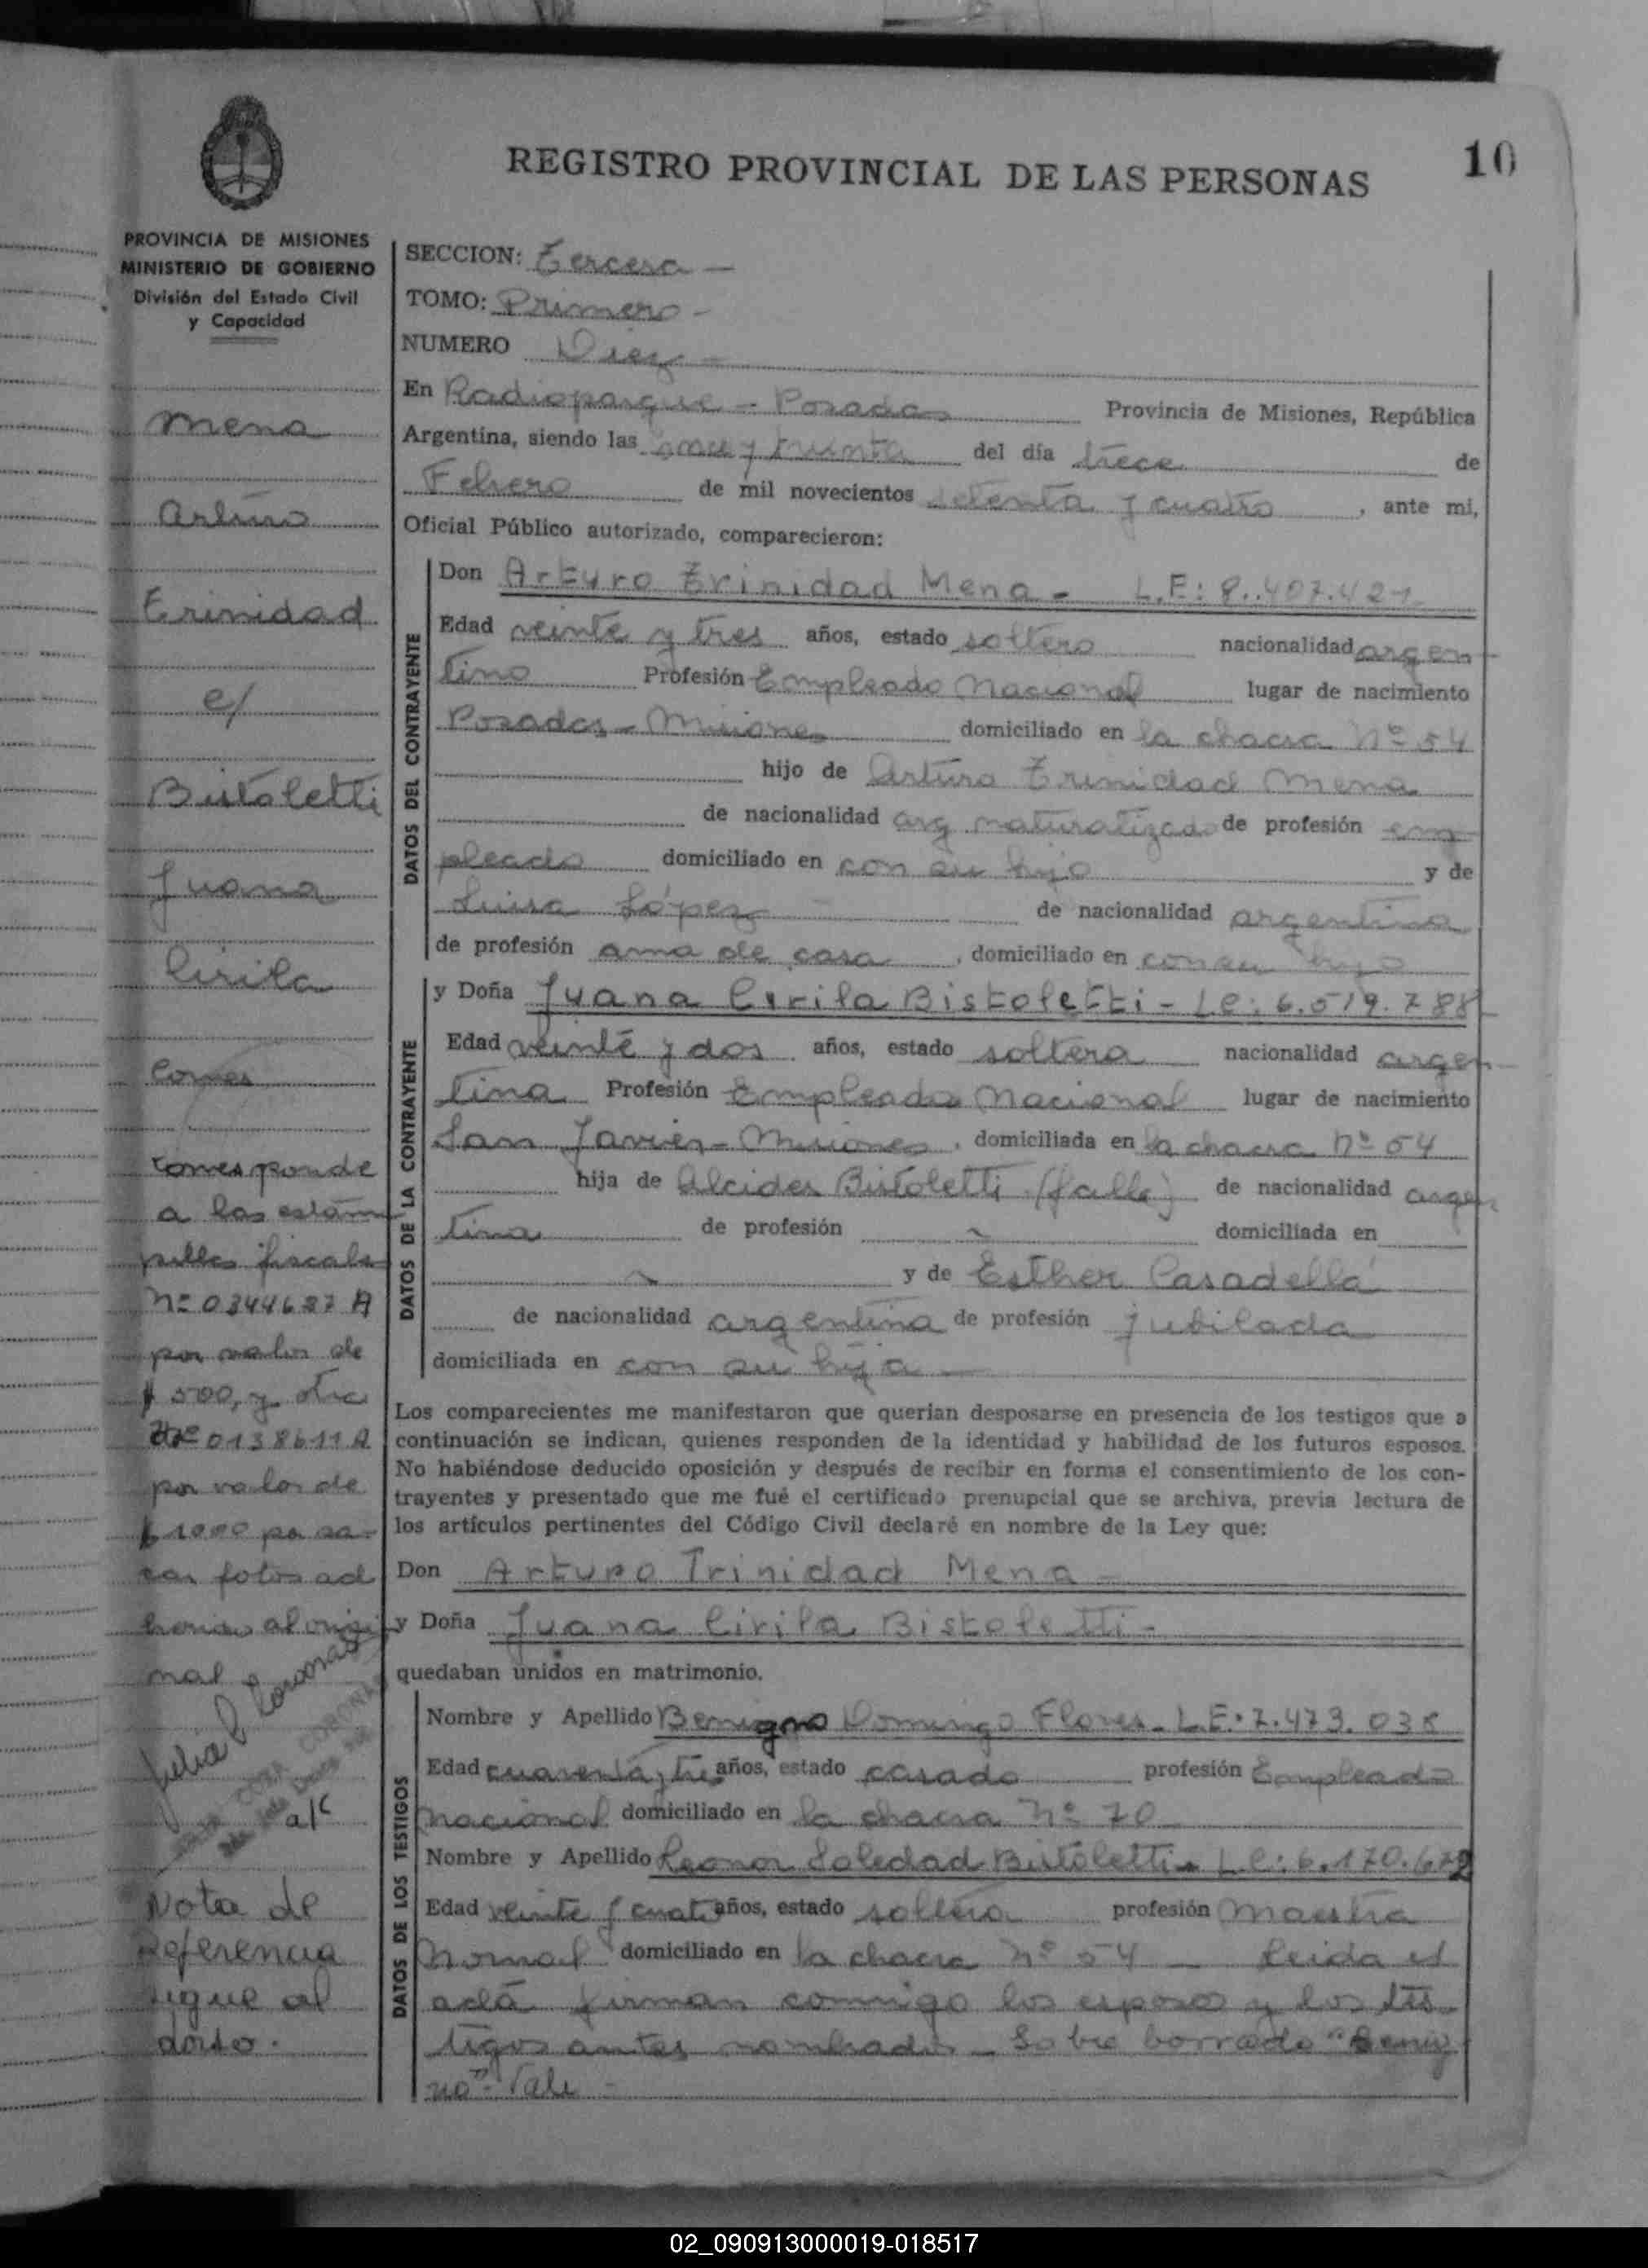 10
REGISTRO PROVINCIAL DE LAS PERSONAS
PROVINCIA DE MISIONES
MINISTERIO DE GOBIERNO
División del Estado Civil
y Capacidad
Mena
Arturo
Trinidad
c/
Bistoletti
Juana
Cirila
Corresponde
a las estam
pillas fiscales
Nº 0344687 A
por valor de
$ 500, y otra
Nº 0138611 A
por valor de
$ 1000 por sa-
car fotos ad
heridas al origi
nal
a/c
Nota de
Referencia
sigue al
dorso.
SECCION: Tercera -
TOMO: Primero -
NUMERO Diez -
En Radioparque - Posadas Provincia de Misiones, República
Argentina, siendo las once y treinta del día trece de
Febrero de mil novecientos setenta y cuatro, ante mi,
Oficial Público autorizado, comparecieron:
DATOS DEL CONTRAYENTE
Don Arturo Trinidad Mena - L.E: 8.407.421
Edad veinte y tres años, estado soltero nacionalidad argen-
tino Profesión Empleado Nacional lugar de nacimiento
Posadas - Misiones domiciliado en la chacra Nº 54
hijo de Arturo Trinidad Mena
de nacionalidad arg naturalizado de profesión em-
pleado domiciliado en con su hijo y de
Luisa López de nacionalidad argentina
de profesión ama de casa, domiciliado en con su hijo
DATOS DE LA CONTRAYENTE
y Doña Juana Cirila Bistoletti - L.C: 6.519.788
Edad veinte y dos años, estado soltera nacionalidad argen-
tina Profesión Empleada Nacional lugar de nacimiento
San Javier - Misiones, domiciliada en la chacra Nº 54
hija de Alcides Bistoletti (falle) de nacionalidad argen
tina de profesión ~ domiciliada en
~ y de Esther Casadella
de nacionalidad argentina de profesión jubilada
domiciliada en con su hija -
Los comparecientes me manifestaron que querían desposarse en presencia de los testigos que a
continuación se indican, quienes responden de la identidad y habilidad de los futuros esposos.
No habiéndose deducido oposición y después de recibir en forma el consentimiento de los con-
trayentes y presentado que me fué el certificado prenupcial que se archiva, previa lectura de
los artículos pertinentes del Código Civil declaré en nombre de la Ley que:
Don Arturo Trinidad Mena -
y Doña Juana Cirila Bistoletti -
quedaban unidos en matrimonio.
DATOS DE LOS TESTIGOS
Nombre y Apellido Benigno Domingo Flores - L.E: 7.473.038
Edad cuarenta y tres años, estado casado profesión Empleado
Nacional domiciliado en la chacra Nº 70
Nombre y Apellido Leonor Soledad Bistoletti - L.C: 6.170.672
Edad veinte y cuatro años, estado soltera profesión Maestra
Normal domiciliado en la chacra Nº 54 - Leida el
acta firman conmigo los esposos y los tes-
tigos antes nombrados - Sobre borrado "Benig
no" Vale -
02_090913000019-018517